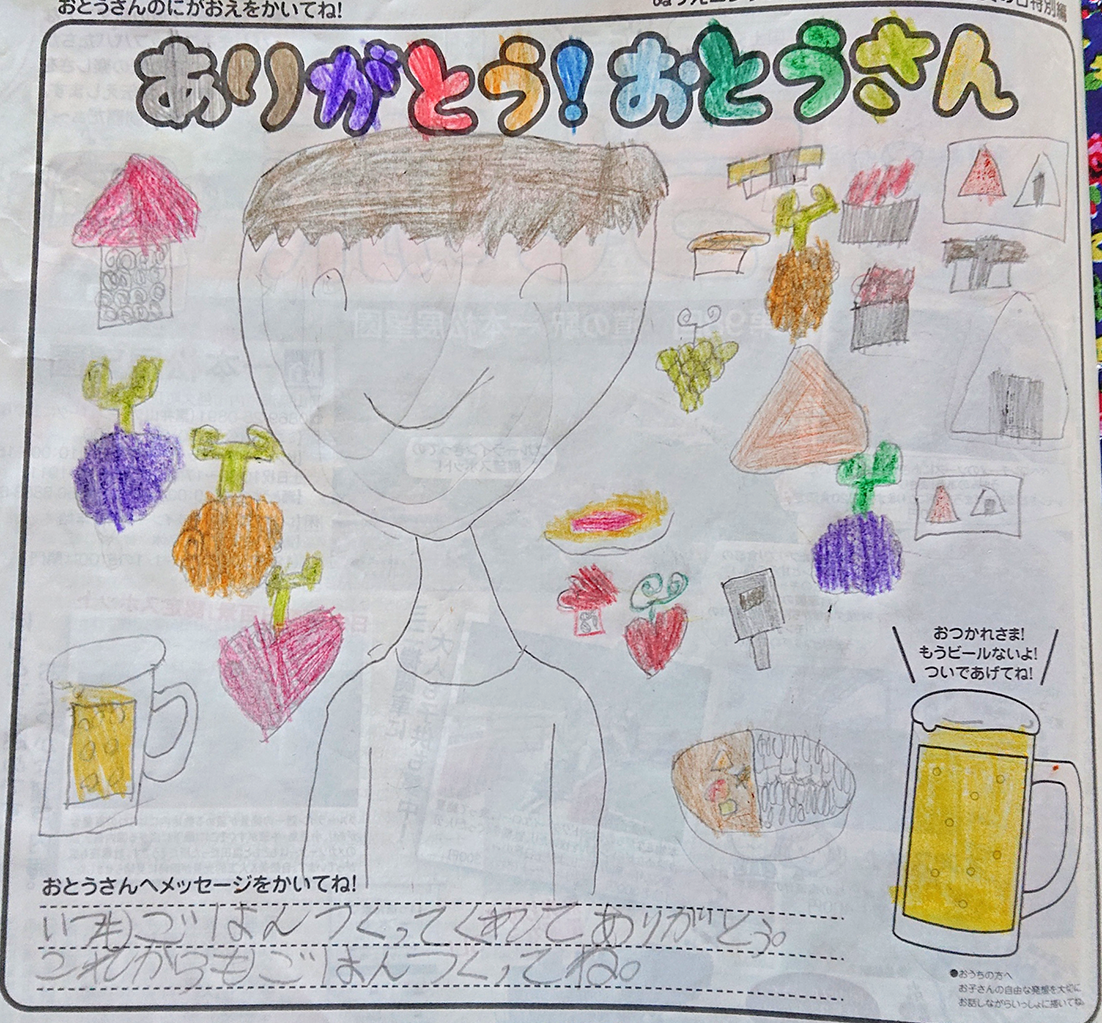 おとうさんのにがおえをかいてね!
ありがとう!おとうさん
おつかれさま!
もうビールないよ!
ついであげてね!
おとうさんへメッセージをかいてね!
いつもごはんつくってくれてありがとう。
これからもごはんつくってね。
●おうちの方へ
お子さんの自由な発想を大切に
お話しながらいっしょに描いてね。